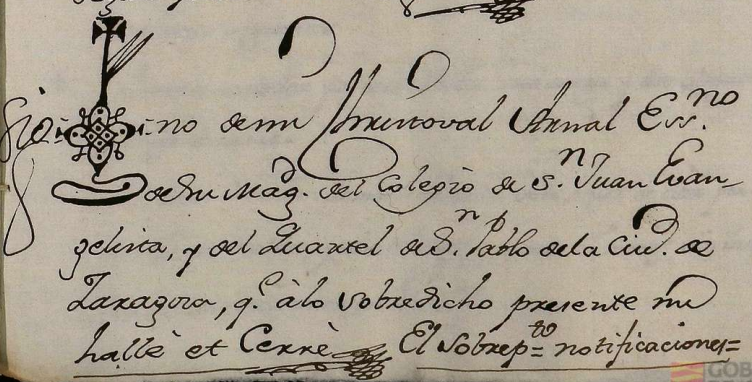 Sig no de mi Christoval Arnal Ess.no
de Su Magd. del Colegio de S.n Juan Evan-
gelista, y del Quartel de S.n Pablo de la Ciud. de
Zaragoza, q.e à lo sobredicho presente me
hallè et Cerrè. El sobrep.to = notificaciones =
GOB